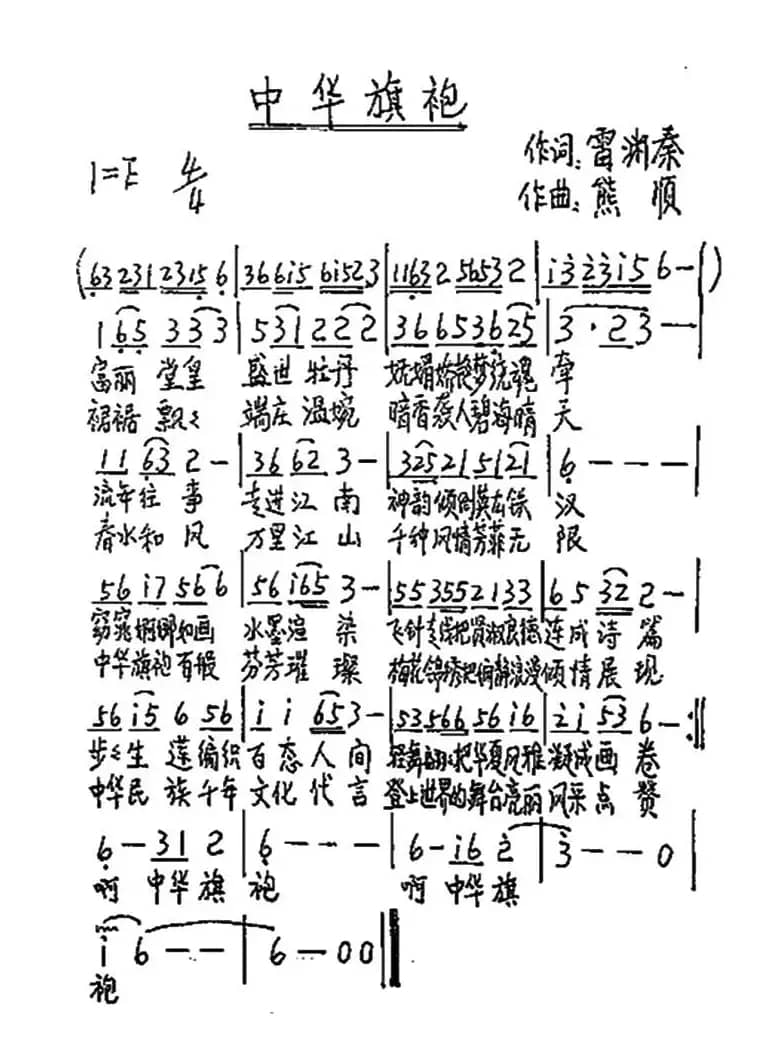 中华旗袍
作词:雷渊秦
1=E 4/4
作曲:熊 顺
(63 231 2315 6 | 36 6i5 6i52 3 | 1163 2 5653 2 | i3 23i5 6 — | )
1 65 3 3 3 | 5 31 2 2 2 | 36 6536 25 | 3 · 2 3 — |
富丽 堂皇 盛世 牡丹 妩媚 梦 魂 牵
裙裾 飘飘 端庄 温婉 暗香袭人碧海晴 天
11 63 2 — | 36 62 3 — | 325 21 51 21 | 6 — — — |
流年往 事 走进江 南 神韵倾 汉
春水和 风 万里江 山 千种风情芳菲无 限
56 i7 56 6 | 56 i65 3 — | 55 355 21 33 | 6 5 32 2 — |
窈窕婀娜如画 水墨渲 染 飞针走线把贤淑良德 连成诗 篇
中华旗袍百般 芬芳璀 璨 梅花锦绣把 静浪漫 倾情展 现
56 i5 6 56 | i i 65 3 — | 53 566 56 i6 | 2 i 53 6 — :||
步步生 莲编织 百态人 间 轻舞 把华夏风雅 凝成画 卷
中华民 族千年 文化代 言 登上世界的舞台亮丽 风采点 赞
6 — 31 2 | 6 — — — | 6 — i6 2 | 3 — — 0 |
啊 中华旗 袍 啊 中华旗
i 6 — — | 6 — 0 0 ||
袍